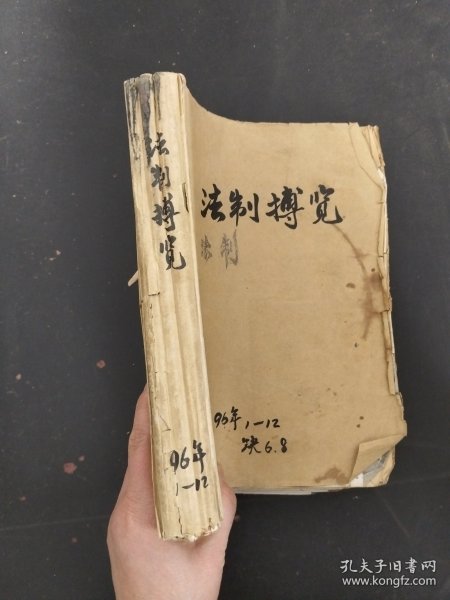 法制搏览
96年
1-12
法制搏览
法制
96年1-12
缺6.8
孔夫子旧书网
www.kongfz.com